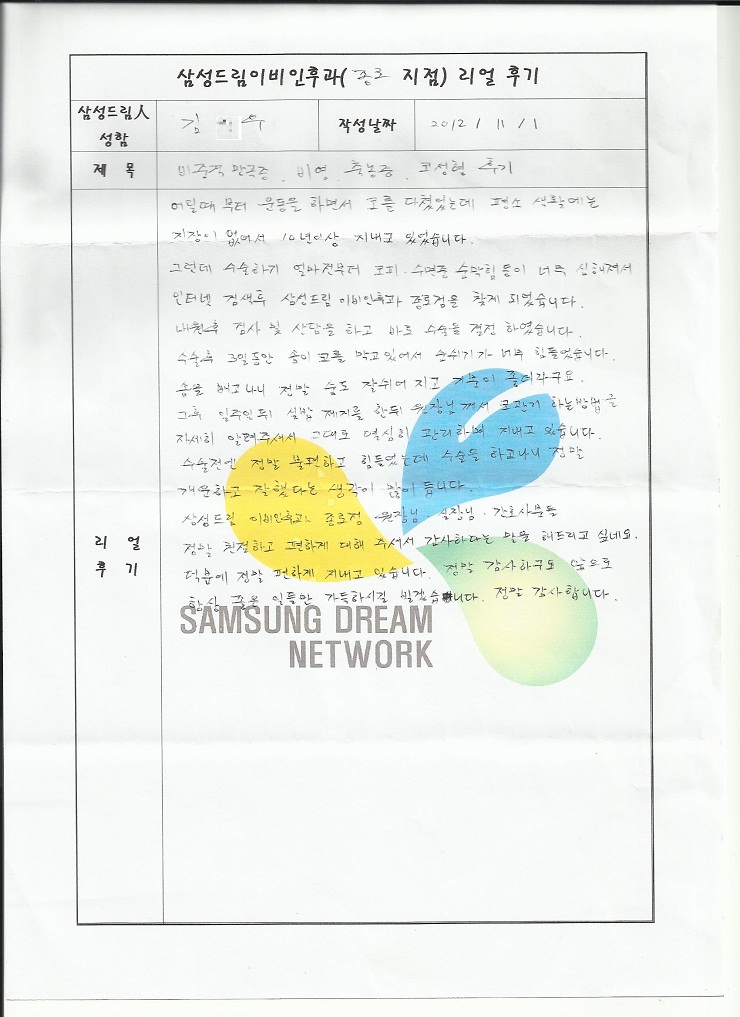 삼성드림이비인후과( 종로 지점) 리얼 후기
삼성드림人 성함
김 우
작성날짜
2012 / 11 / 1
제 목
비중격 만곡증 . 비염 . 축농증 . 코성형 후기
어릴때 부터 운동을 하면서 코를 다쳤었는데 평소 생활에는
지장이 없어서 10년이상 지내고 있었습니다.
그런데 수술하기 얼마전부터 코피 · 수면중 숨막힘 등이 너무 심해져서
인터넷 검색후 삼성드림 이비인후과 종로점을 찾게 되었습니다.
내원후 검사 및 상담을 하고 바로 수술을 결정 하였습니다.
수술후 3일동안 솜이 코를 막고 있어서 숨쉬기가 너무 힘들었습니다.
솜을 빼고나니 정말 숨도 잘쉬어 지고 기분이 좋더라구요.
그후 일주일뒤 실밥 제거를 한뒤 원장님께서 코관리 하는방법을
자세히 알려주셔서 그대로 열심히 관리하며 지내고 있습니다.
수술전엔 정말 불편하고 힘들었는데 수술을 하고나니 정말
개운하고 잘했다는 생각이 많이 듭니다.
삼성드림 이비인후과 종로점 원장님 · 실장님 · 간호사분들
정말 친절하고 편하게 대해 주셔서 감사하다는 말을 해드리고 싶네요.
덕분에 정말 편하게 지내고 있습니다. 정말 감사하구요 앞으로
항상 좋은 일들만 가득하시길 빌겠습니다. 정말 감사합니다.
리 얼
후 기
SAMSUNG DREAM
NETWORK